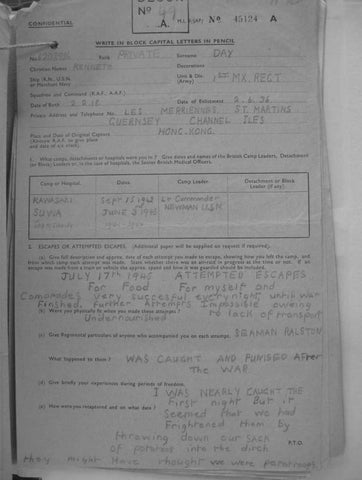 CONFIDENTIAL
No
A.
No 45124 A
WRITE IN BLOCK CAPITAL LETTERS IN PENCIL
No. Rank PRIVATE Surname DAY
Christian Names KENNETH Decorations
Ship (R.N., U.S.N. or Merchant Navy) Unit & Div. (Army) 1ST MX. REGT
Squadron and Command (R.A.F., A.A.F.)
Date of Birth 2.2.18 Date of Enlistment 2.6.36
Private Address and Telephone No. LES MERRIENNES, ST. MARTINS
GUERNSEY CHANNEL ISLES
Place and Date of Original Capture HONG-KONG.
1. What camps, detachments or hospitals were you in? Give dates and names of the British Camp Leaders, Detachment
(or Block) Leaders or, in the case of hospitals, the Senior British Medical Officers.
Camp or Hospital. Dates Camp Leader. Detachment or Block Leader (if any).
KAWASAKI SEPT 15 1943 Lt Commander
SUVIA JUNE 5th 1945 NEWMAN U.S.N
2. ESCAPES OR ATTEMPTED ESCAPES. (Additional paper will be supplied on request if required).
(a) Give full description and approx. date of each attempt you made to escape, showing how you left the camp, and
from which camp each attempt was made.
JULY 17th 1945 ATTEMPTED ESCAPES
For Food For myself and
Comorades very succesful every night, until war
Finshed. Further Attempts Impossible owing
(b) Were you physically fit when you made these attempts? to lack of transport
Undernourished
(c) Give Regimental particulars of anyone who accompanied you on each attempt. SEAMAN RALSTON
What happened to them? WAS CAUGHT AND PUNISED AFTER
THE WAR.
(d) Give briefly your experiences during periods of freedom.
I WAS NEARLY CAUGHT THE
(e) How were you recaptured and on what date? First night But it
Seemed that we had
Frightened them by
throwing down our SACK P.T.O.
of potatos into the ditch
they might Have thought we were paratroops!